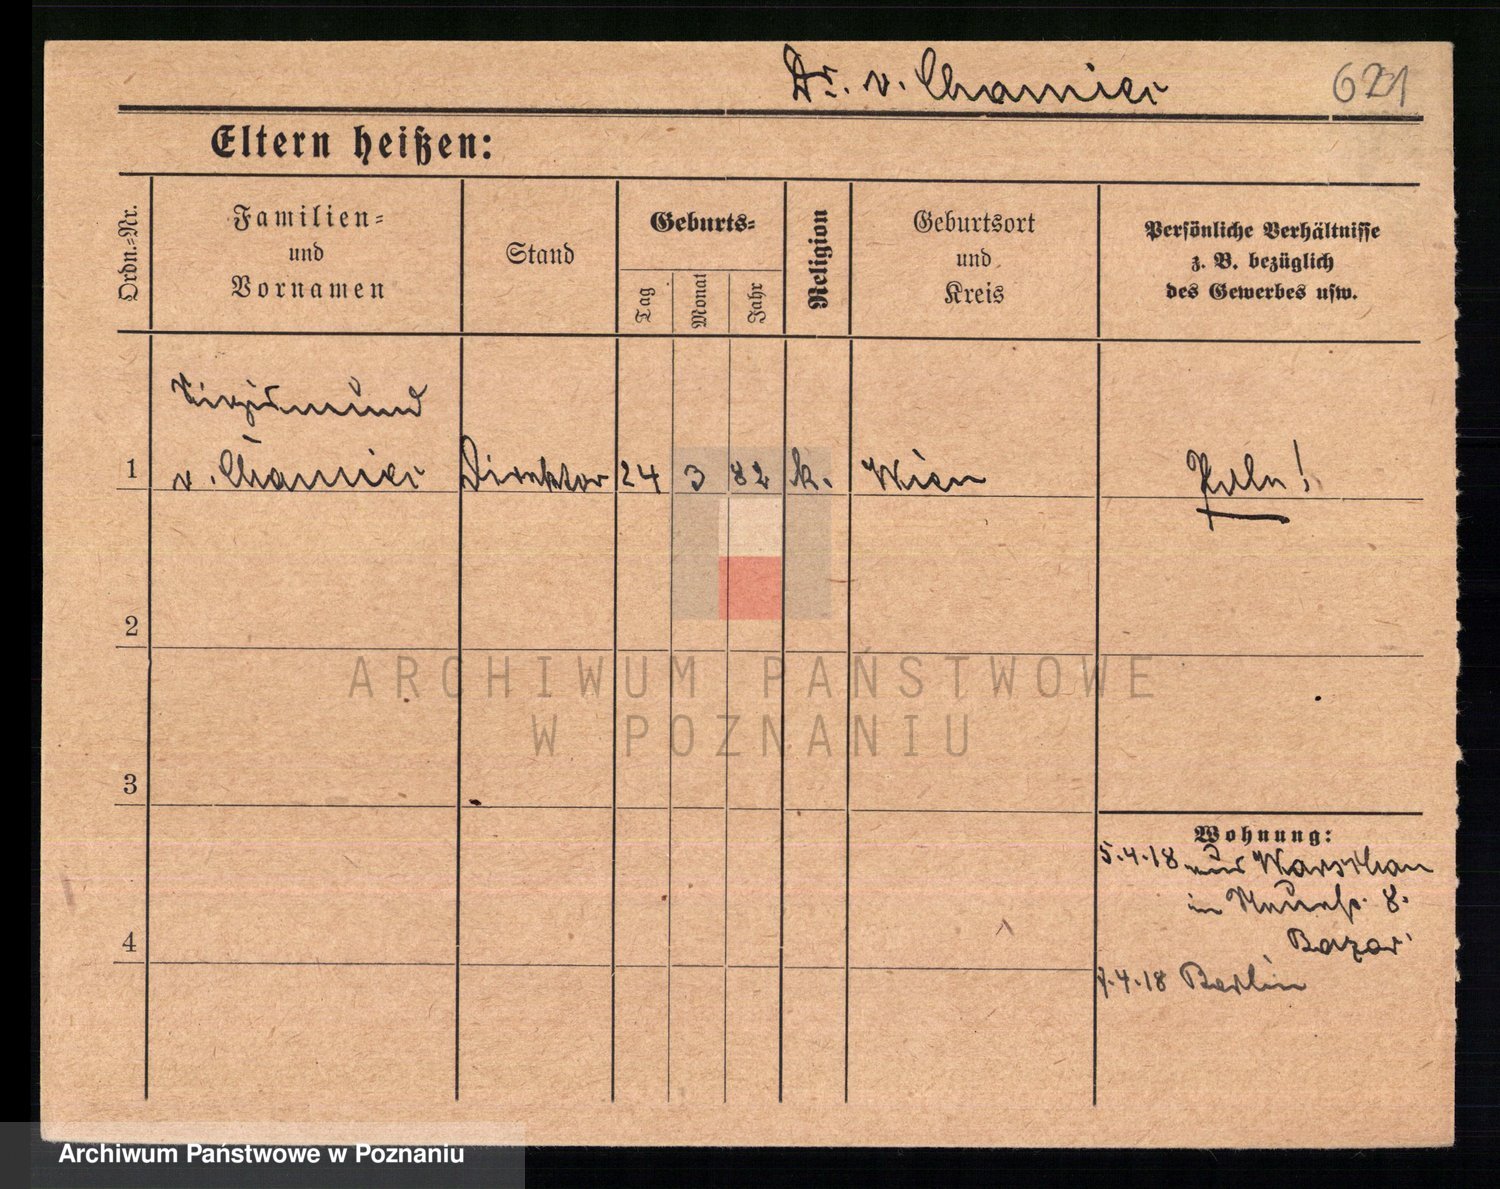 Dr. v. Chamiec
621
Eltern heißen:
Ordn.-Nr.
Familien-
und
Vornamen
Stand
Geburts-
Tag
Monat
Jahr
Religion
Geburtsort
und
Kreis
Persönliche Verhältnisse
z. B. bezüglich
des Gewerbes usw.
1
v. Chamiec
Direktor
24
3
82
k.
Wien
Pole!
2
3
4
Wohnung:
5.4.18 aus Warschau
in 8.
Bazar
7.4.18 Berlin
ARCHIWUM PAŃSTWOWE
W POZNANIU
Archiwum Państwowe w Poznaniu